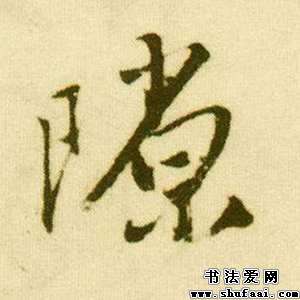 隙
书法爱网
www.shufaai.com